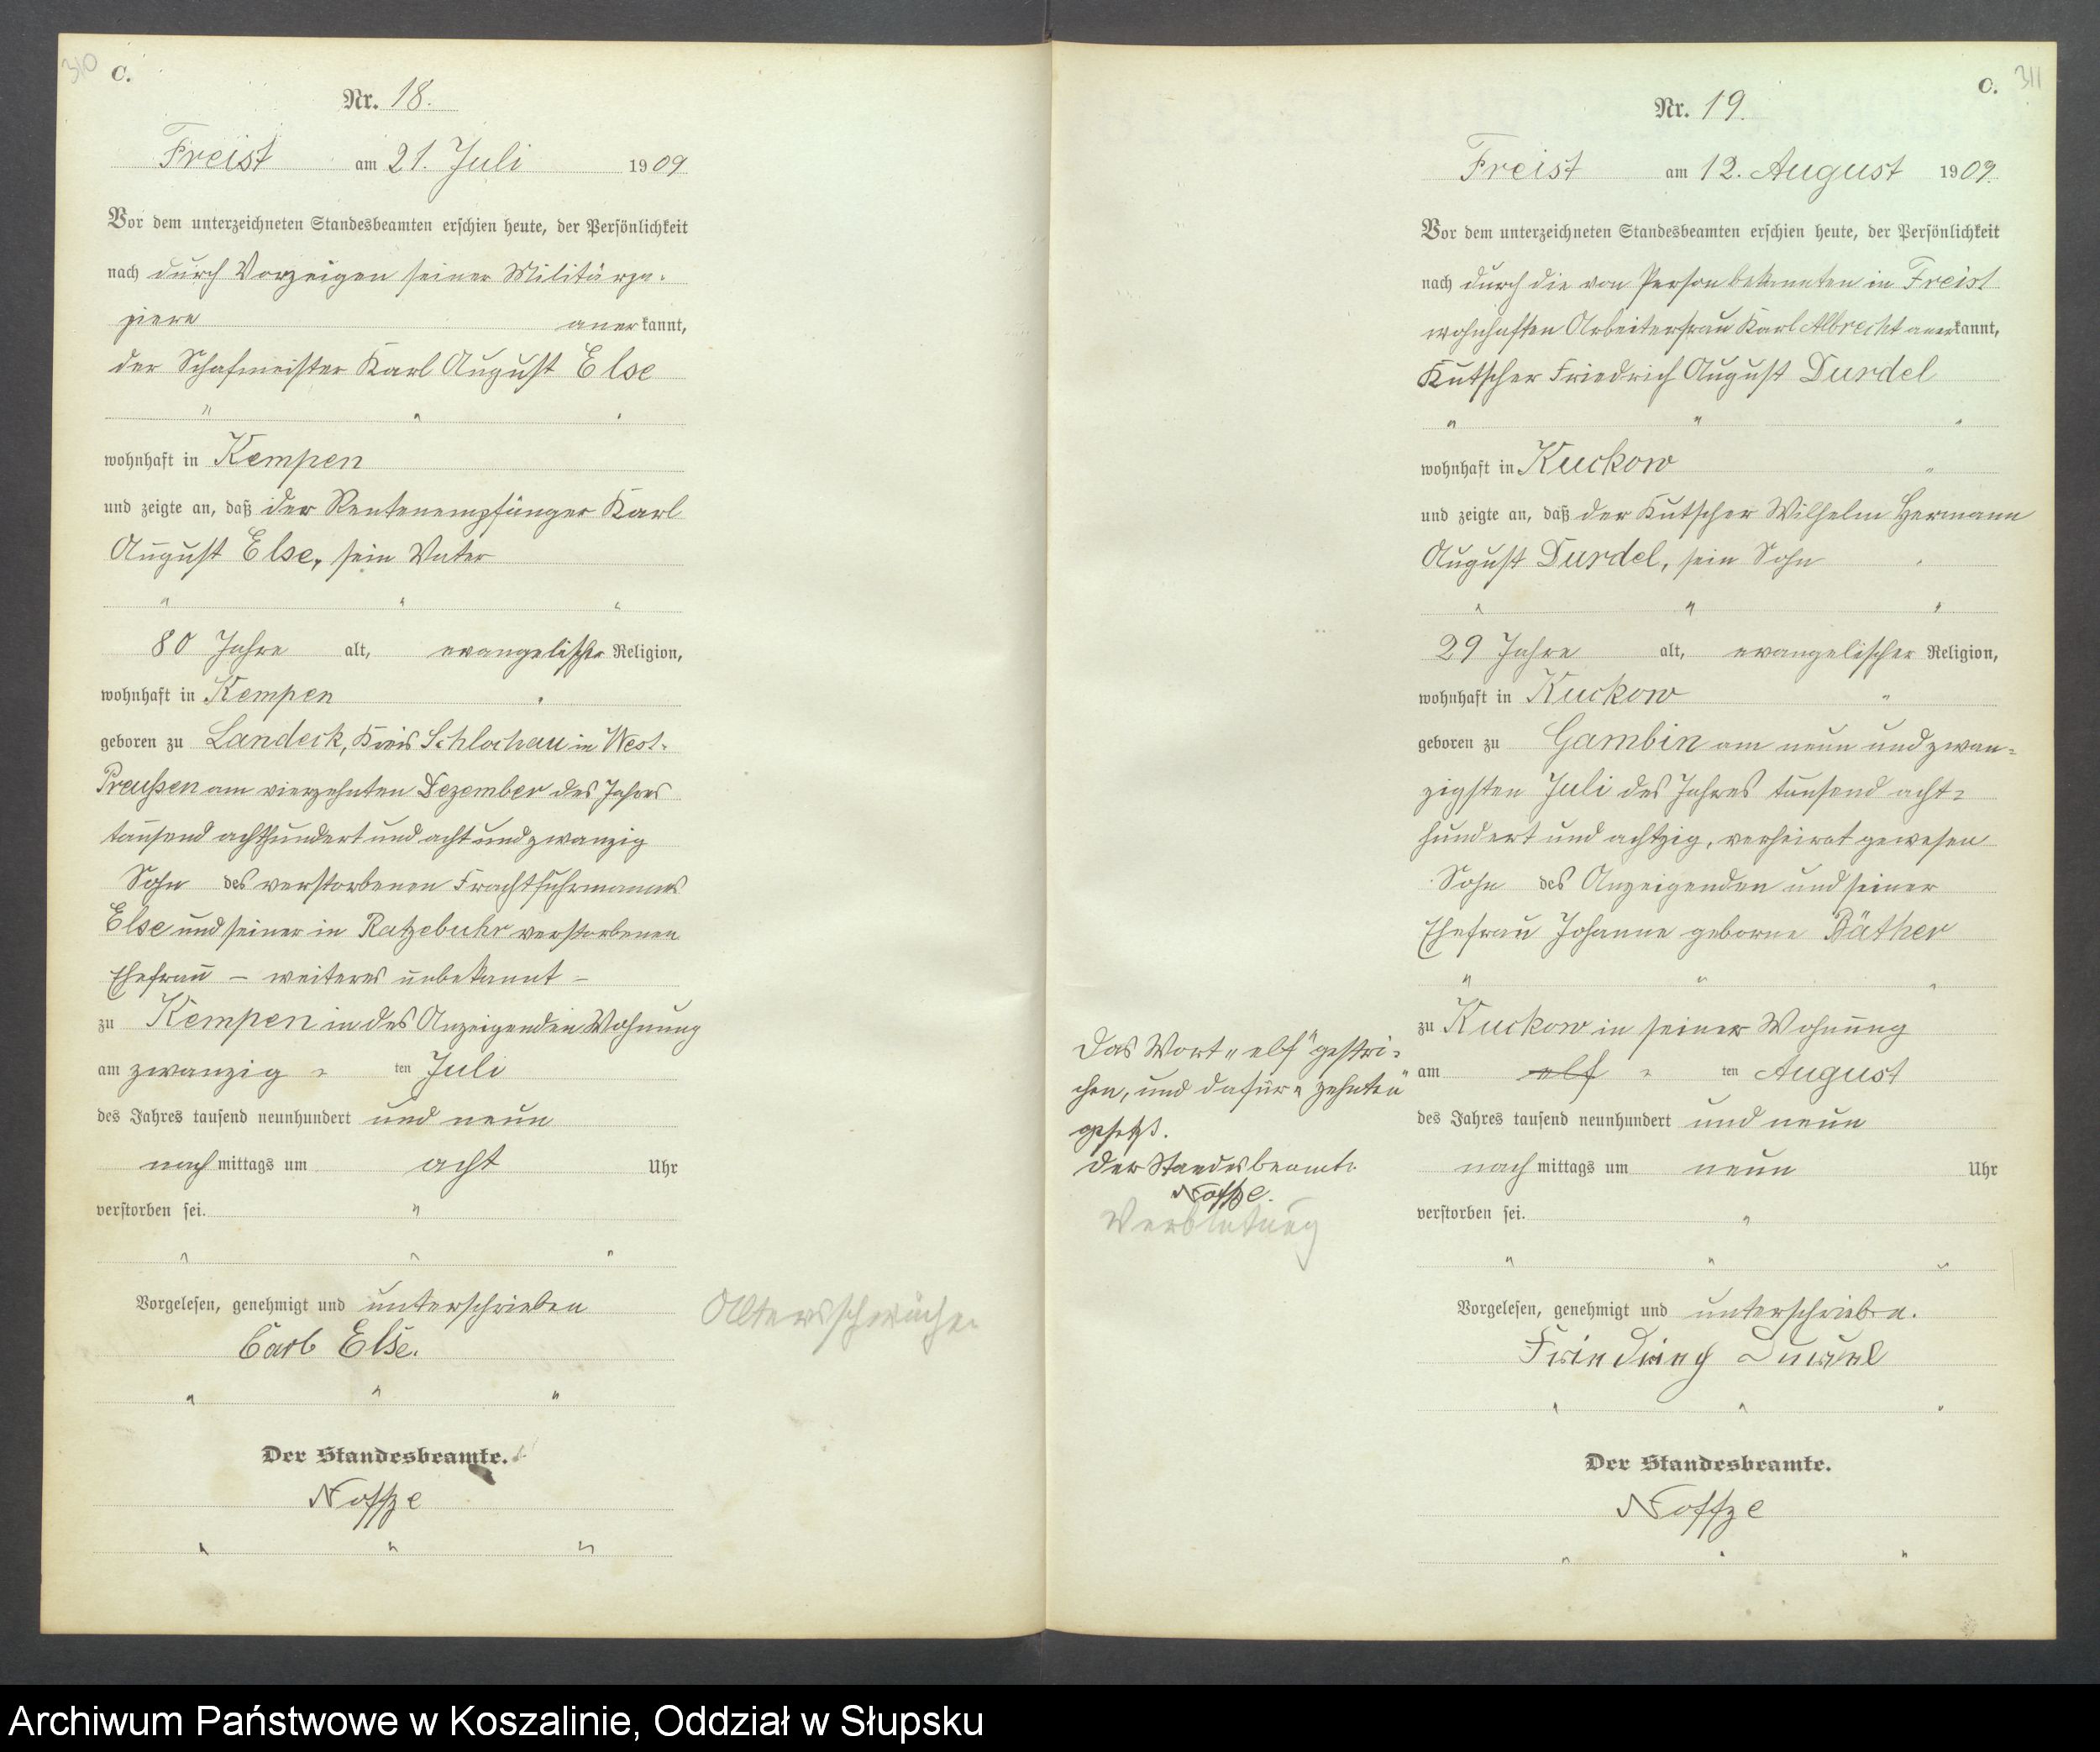 310
C.
Nr. 18.
Freist am 21. Juli 1909
Vor dem unterzeichneten Standesbeamten erschien heute, der Persönlichkeit
nach durch Vorzeigen seiner Militärpa-
piere anerkannt,
der Schafmeister Karl August Else
wohnhaft in Kempen
und zeigte an, daß der Rentenempfänger Karl
August Else, sein Vater
80 Jahre alt, evangelischer Religion,
wohnhaft in Kempen
geboren zu Landeck, Kreis Schlochau in West-
Preußen am vierzehnten Dezember des Jahres
tausend achthundert und acht und zwanzig
Sohn des verstorbenen Frachtfuhrmannes
Else und seiner in Ratzebuhr verstorbenen
Ehefrau – weiteres unbekannt –
zu Kempen in des Anzeigenden Wohnung
am zwanzig ten Juli
des Jahres tausend neunhundert und neun
nach mittags um acht Uhr
verstorben sei.
Vorgelesen, genehmigt und unterschrieben
Carl Else.
Der Standesbeamte.
Noffze
Altersschwäche
311
C.
Nr. 19.
Freist am 12. August 1909.
Vor dem unterzeichneten Standesbeamten erschien heute, der Persönlichkeit
nach durch die von Person bekannten in Freist
wohnhaften Arbeiterfrau Karl Albrecht anerkannt,
Kutscher Friedrich August Durdel
wohnhaft in Kuckow
und zeigte an, daß der Kutscher Wilhelm Hermann
August Durdel, sein Sohn
29 Jahre alt, evangelischer Religion,
wohnhaft in Kuckow
geboren zu Gambin am neun und zwan-
zigsten Juli des Jahres tausend acht-
hundert und achtzig, verheirat gewesen
Sohn des Anzeigenden und seiner
Ehefrau Johanne geborne Bäther
zu Kuckow in seiner Wohnung
am elf ten August
des Jahres tausend neunhundert und neun
nach mittags um neun Uhr
verstorben sei.
Vorgelesen, genehmigt und unterschrieben.
Friedrich Durdel
Der Standesbeamte.
Noffze
Das Wort „elf" gestri-
chen, und dafür „zehnten"
gesetzt.
Der Standesbeamte
Noffze.
Verblutung
Archiwum Państwowe w Koszalinie, Oddział w Słupsku